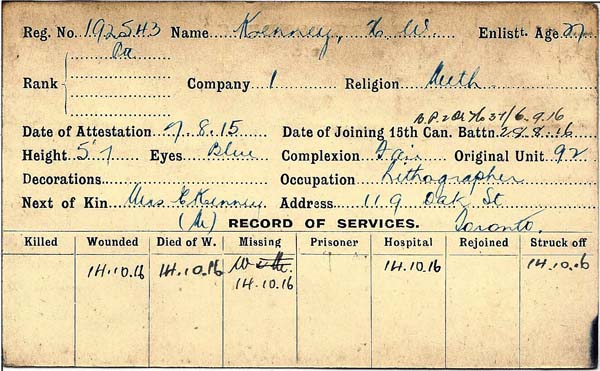 Reg. No. 192543 Name Kenney, W. Enlistt. Age 27
Rank Company 1 Religion Meth
Date of Attestation 7.8.15 Date of Joining 15th Can. Battn. 28.8.16
Height 5'7 Eyes Blue Complexion Fair Original Unit 92
Decorations Occupation Lithographer
Next of Kin Mrs. E Kenney Address 119 Oak St
(M) RECORD OF SERVICES. Toronto.
Killed Wounded Died of W. Missing Prisoner Hospital Rejoined Struck off
14.10.16 14.10.16 14.10.16 14.10.16
14.10.16